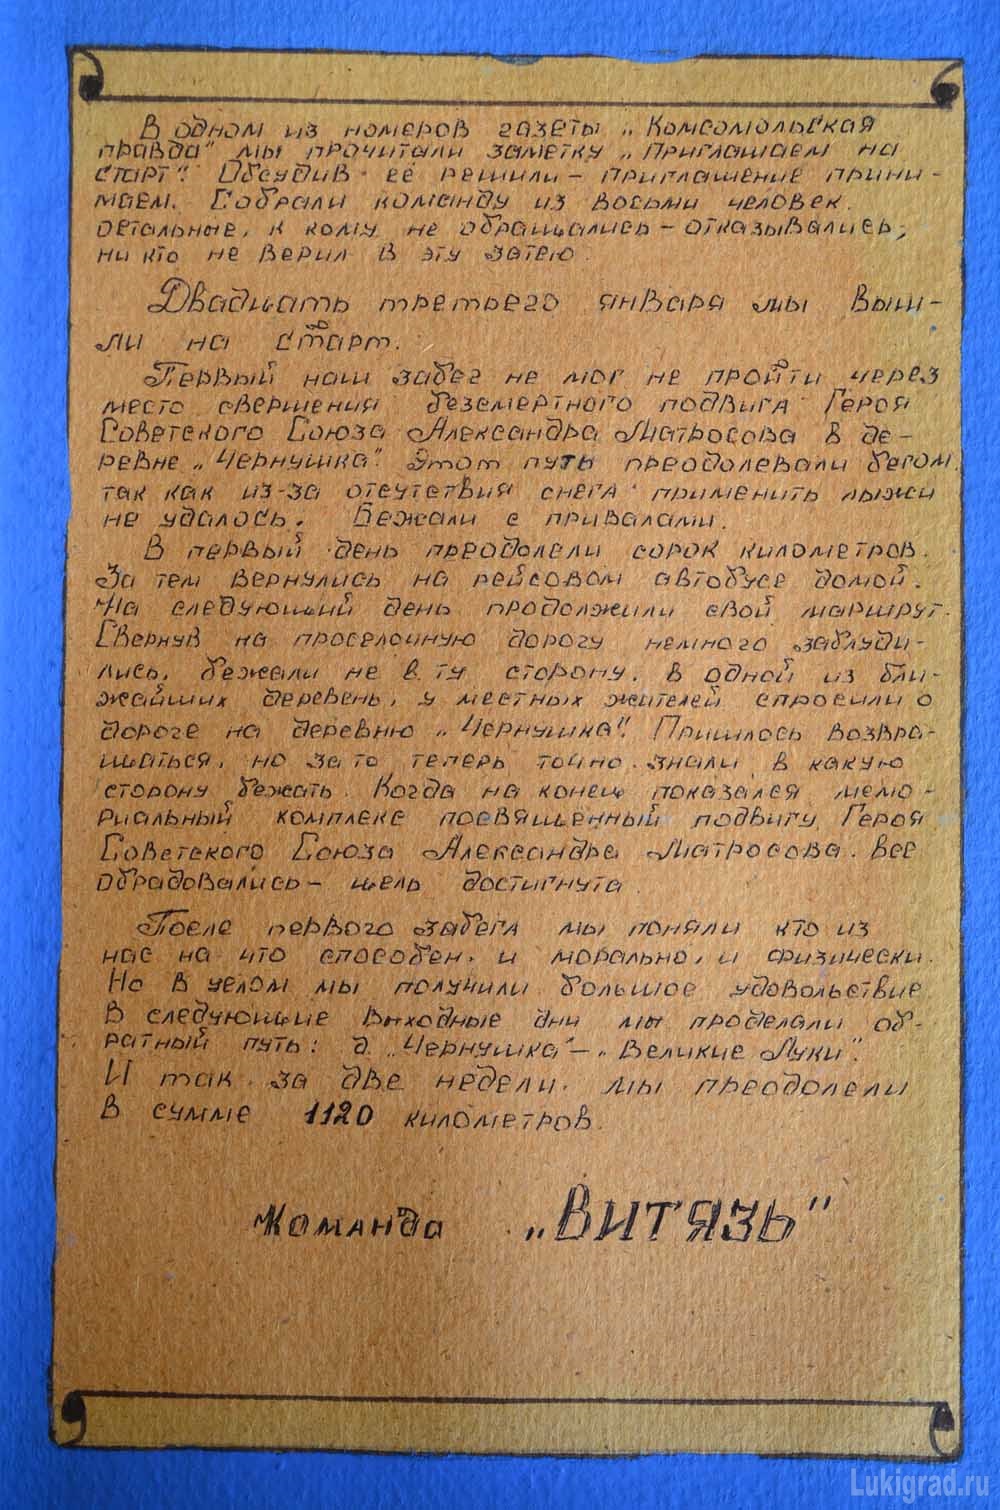 В одном из номеров газеты „Комсомольская
правда" мы прочитали заметку „Приглашаем на
старт". Обсудив её решили – приглашение прини-
маем. Собрали команду из восьми человек.
остальные, к кому не обращались – отказывались,
ни кто не верил в эту затею.
Двадцать третьего января мы выш-
ли на старт.
Первый наш забег не мог не пройти через
место свершения безсмертного подвига Героя
Советского Союза Александра Матросова в де-
ревне „Чернушка". Этот путь преодолевали бегом,
так как из-за отсутствия снега применить лыжи
не удалось. Бежали с привалами.
В первый день преодолели сорок километров.
За тем вернулись на рейсовом автобусе домой.
На следующий день продолжили свой маршрут.
Свернув на проселочную дорогу немного заблуди-
лись, бежали не в ту сторону. В одной из бли-
жайших деревень, у местных жителей спросили о
дороге на деревню „Чернушка". Пришлось возвра-
щаться, но за то теперь точно знали в какую
сторону бежать. Когда на конец показался мемо-
риальный комплекс посвящённый подвигу Героя
Советского Союза Александра Матросова. все
обрадовались – цель достигнута.
После первого забега мы поняли кто из
нас на что способен, и морально, и физически.
Но в целом мы получили большое удовольствие
В следующие выходные дни мы проделали об-
ратный путь: д. „Чернушка" – „Великие Луки".
И так за две недели мы преодолели
в сумме 1120 километров.
Команда „ВИТЯЗЬ"
Lukigrad.ru